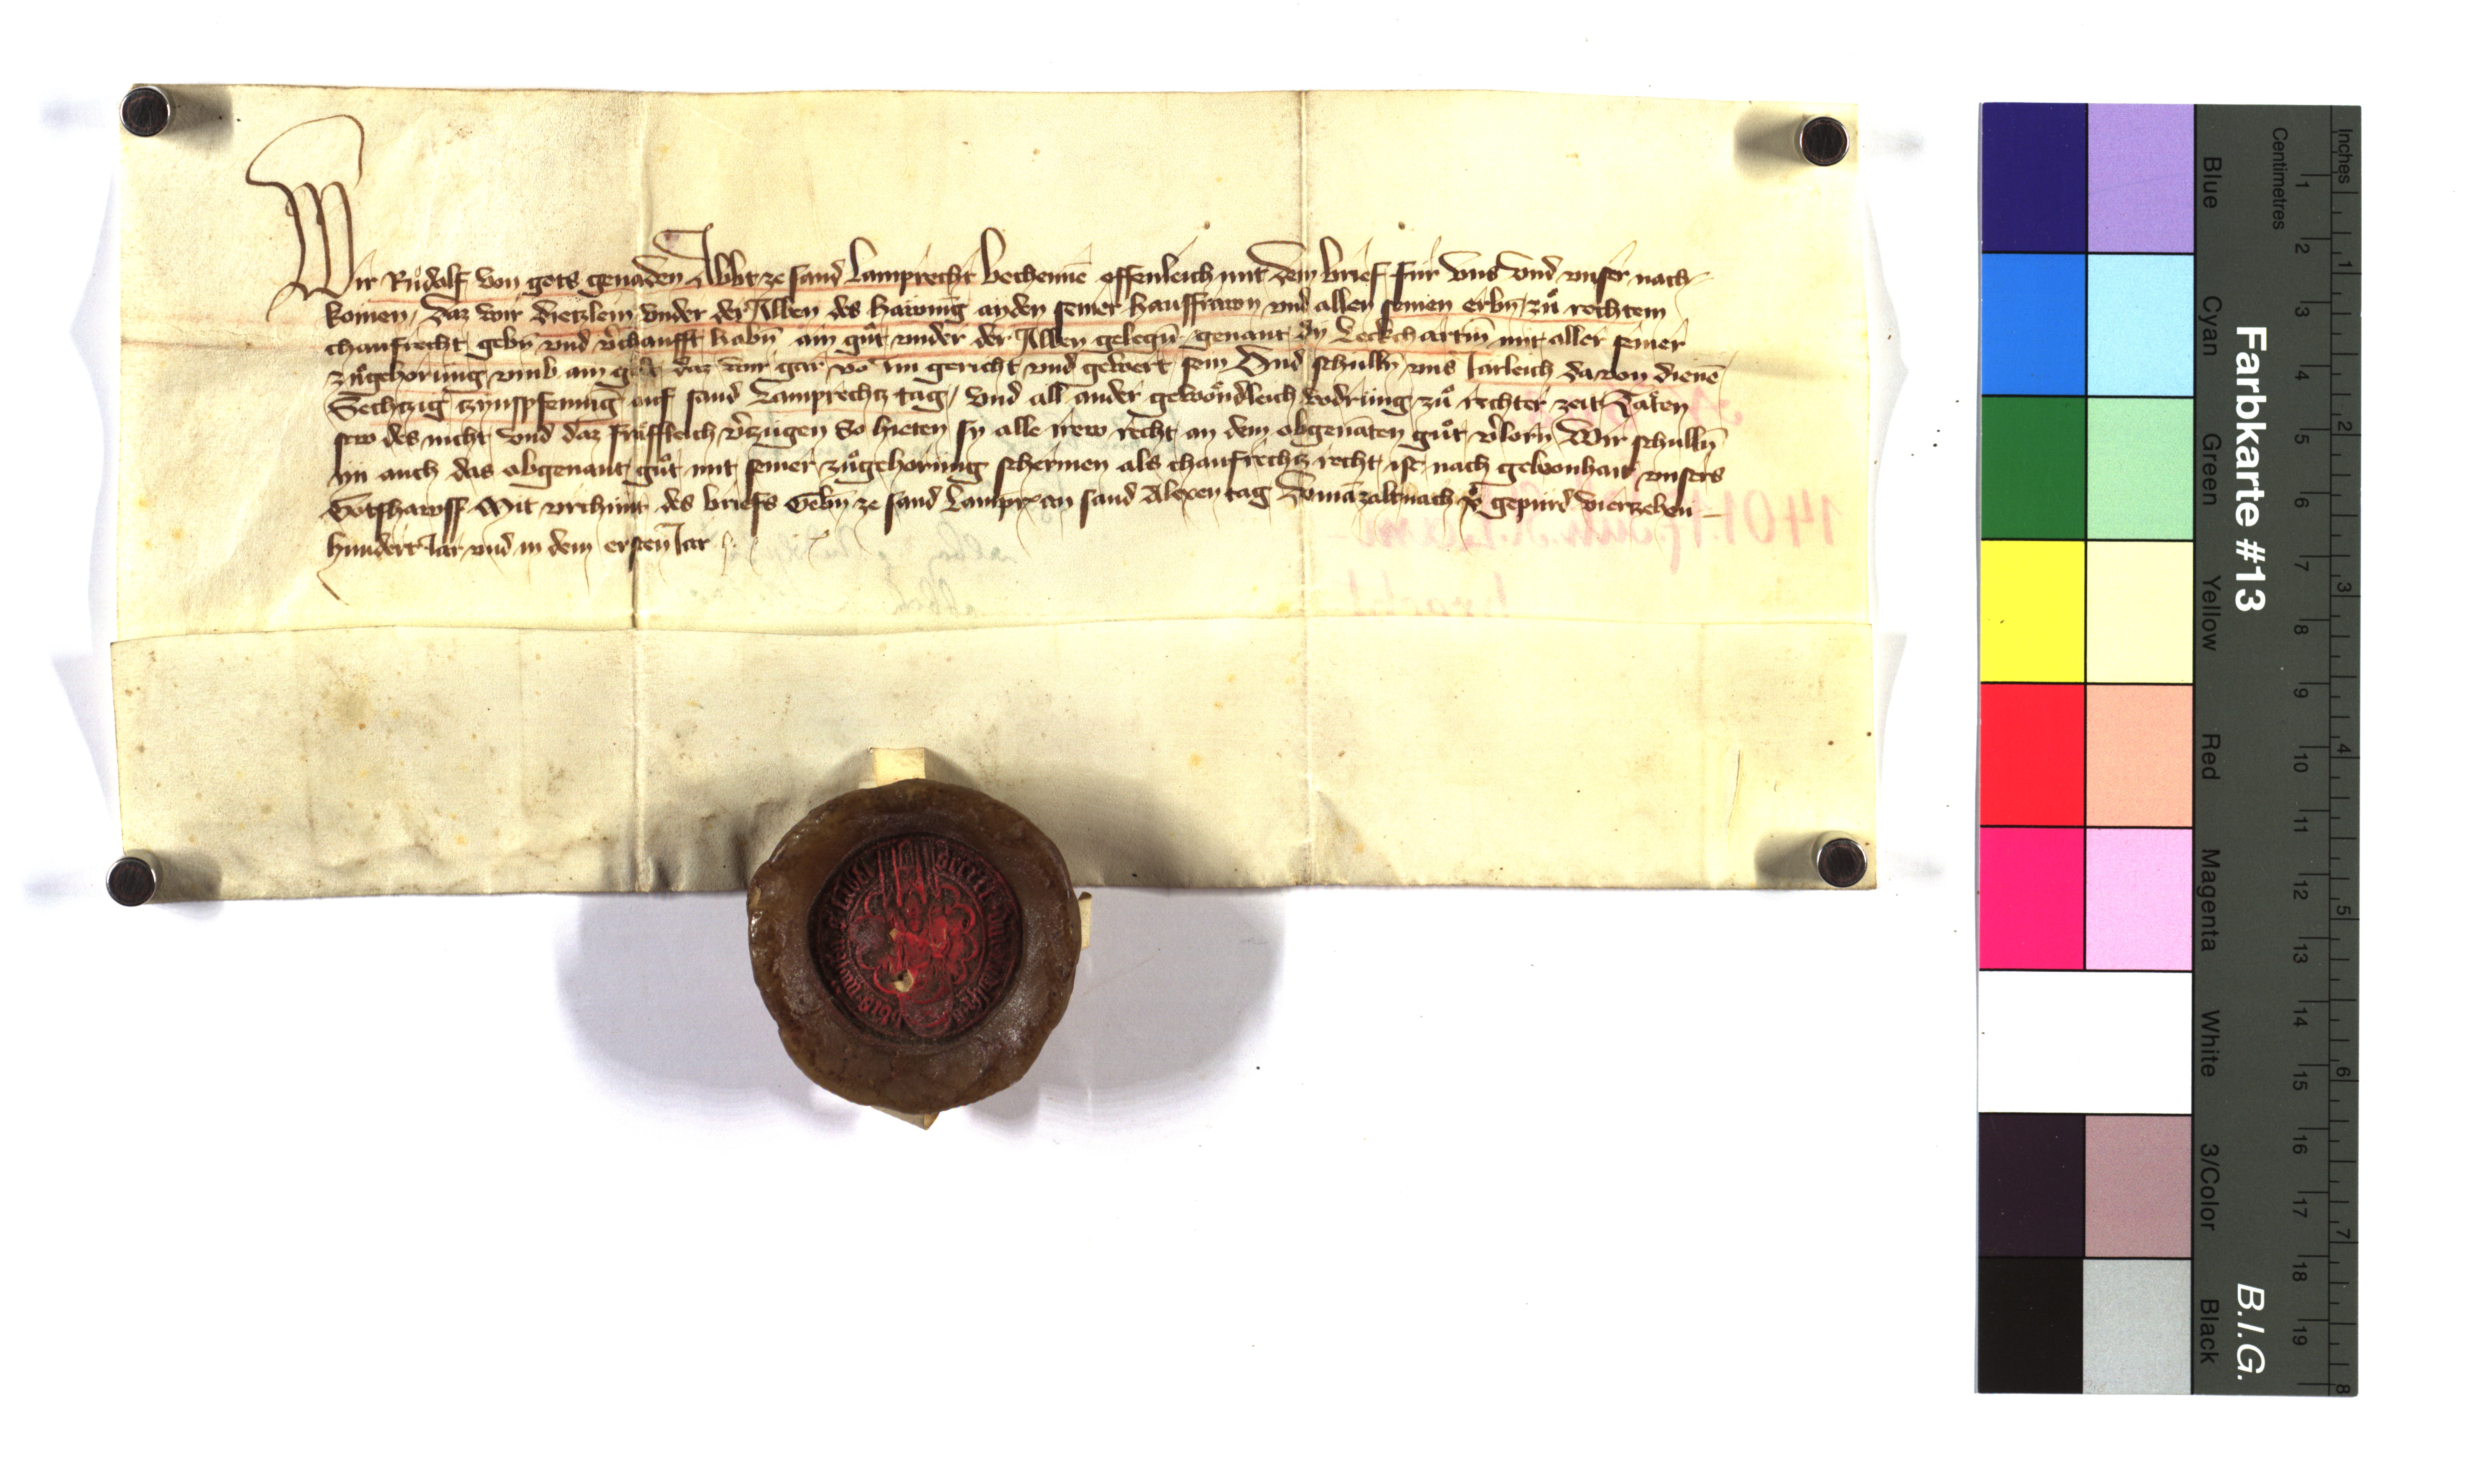 Wir Růdolf von gots genaden Abbt ze sand Lamprecht bechennē offenleich mit dem brief fur vns vnd vnser nach
komen, Daz wir dietzlein vnder der Alben des hawnig ayden seiner hausfrawn vnd allen seinen erbn̄ zů rechtem
chaufrecht gebn̄ vnd v̓chaufft habn̄ ain gůt vnder der Alben gelegn̄ genant dy Leckchartin̄ mit aller seiner
zůgehorung vmb ain daz wir gar vō im gericht vnd gewert sein Vnd schulln̄ vns Jarleich dauon dienē
Sechtzig tzynspfening auf sand Lamprechtz tag, Vnd all ander gewöndleich vodrung zů rechter zeit Täten
sew des nicht vnd daz fräffleich v̓tzugen So hieten sy alle irew recht an dem obgenāten gůt v̓lorn Wir schulln̄
im auch das obgenant gůt mit seiner zůgehorung schermen als chaufrechtz recht ist nach gewonhait vnsers
Gotshawss Mit vrchunt des briefs Gebn̄ ze sand Lampr an sand Alexen tag Do mā zalt nach gepurd viertzehen
hundert Jar vnd in dem ersten Jar
1401.17. Juli. St. Lam-
brecht
Farbkarte #13
B.I.G.
Blue Cyan Green Yellow Red Magenta White 3/Color Black
Centimetres 1 2 3 4 5 6 7 8 9 10 11 12 13 14 15 16 17 18 19
Inches 1 2 3 4 5 6 7 8